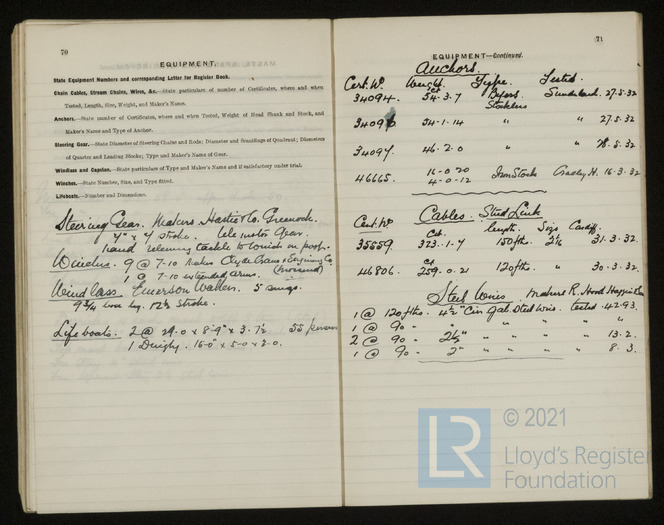 70
EQUIPMENT.
State Equipment Numbers and corresponding Letter for Register Book.
Chain Cables, Stream Chains, Wires, &c.—State particulars of number of Certificates, where and when
Tested, Length, Size, Weight, and Maker's Name.
Anchors.—State number of Certificates, where and when Tested, Weight of Head Shank and Stock, and
Maker's Name and Type of Anchor.
Steering Gear.—State Diameter of Steering Chains and Rods; Diameter and Scantlings of Quadrant; Diameters
of Quarter and Leading Blocks; Type and Maker's Name of Gear.
Windlass and Capstan.—State particulars of Type and Maker's Name and if satisfactory under trial.
Winches.—State Number, Size, and Type fitted.
Lifeboats.—Number and Dimensions.
Steering Gear. Makers Hastie & Co. Greenock.
7" x 7 stroke. Telemotor Gear.
hand relieving tackle to winch on poop.
Winches. 9 @ 7-10 Makers Clyde Crane & Engineering Co.
1 @ 7-10 extended arms.
Windlass Emerson Walker.
9 3/4 stroke.
Lifeboats. 2 @ 29.0 x 8-9" x 3. 7½ 55 persons
1 Dinghy. 16-0" x 5-0 x 2-0.
71
EQUIPMENT—Continued.
Anchors.
Cert. No. Weight. Type. Tested.
34094. 54-3.7 Byers Sunderland. 27.5.32
Stockless
54-1-14 " " 27.5.32
34097. 46-2.0 " " 5.32
46665. 16-0.20 Iron Stock Cradley H. 16-3.32
4-0-12
Cables. Stud Link
Cert. No. Cwt. length. Size Cardiff.
35559 323.1.7 150fths. 2 1/16 31.3.32.
46806. cwt 259.0.21 120fths. " 30.3.32.
Steel Wires. Makers R. Hood Haggie & Son
1 @ 120fths. 4½" Cir. Gal. Steel Wire. tested 4.2.93.
1 @ 90 - " " " " "
2 @ 90 - 2½" " " " 13.2.
1 @ 90 - 2" " " " 8.3.
LR
© 2021
Lloyd's Register
Foundation